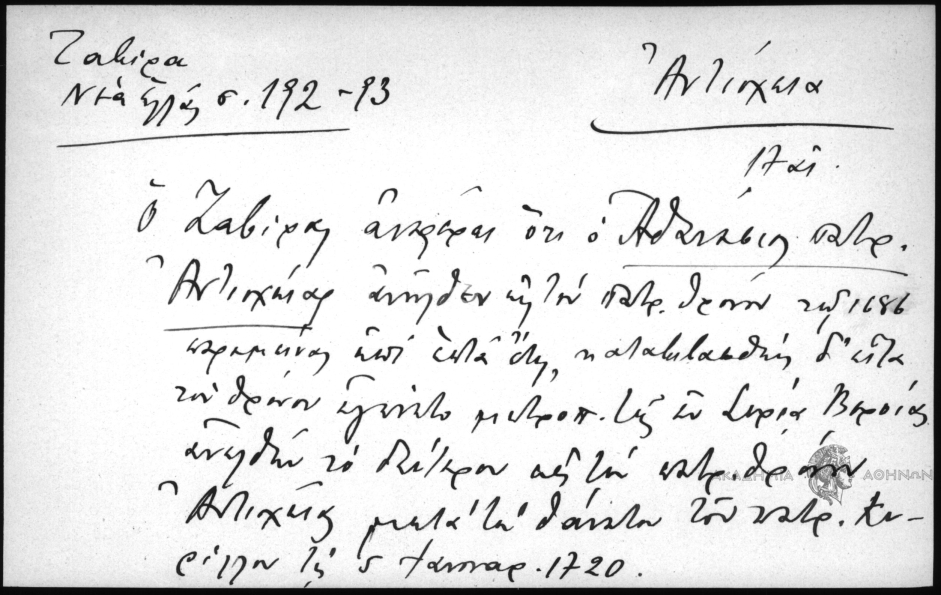 Ζαβίρα
Νέα Ἑλλάς σ. 192-93
Ἀντιόχεια
17 αἰ.
Ὁ Ζαβίρας ἀναφέρει ὅτι ὁ Ἀθανάσιος πατρ.
Ἀντιοχείας ἀνῆλθεν εἰς τὸν πατρ. θρόνον τῷ 1686
παραμείνας ἐπὶ ἑπτὰ ἔτη, καταβιβασθεὶς δ' εἶτα
τοῦ θρόνου ἐγένετο μητροπ. τῆς ἐν Συρίᾳ Βεροίας
ἀνελθὼν τὸ δεύτερον εἰς τὸν πατρ. θρόνον
Ἀντιοχείας μετὰ τὸν θάνατον τοῦ πατρ. Κυ-
ρίλλου τῇ 5 Ἰανουαρ. 1720.
ΑΚΑΔΗΜΙΑ ΑΘΗΝΩΝ